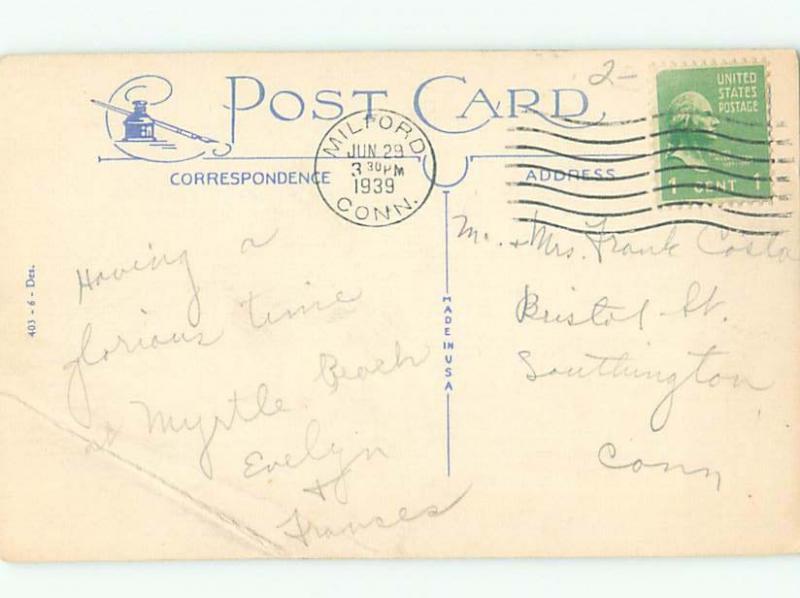 2-
POST CARD
UNITED
STATES
POSTAGE
1 CENT 1
MILFORD
JUN 29
3 30PM
1939
CONN.
CORRESPONDENCE
ADDRESS
403 - 6 - Des.
MADE IN USA
Having a
glorious time
at Myrtle Beach
Evelyn
+
Frances
Mr. + Mrs. Frank Costa
Bristol St.
Southington
Conn